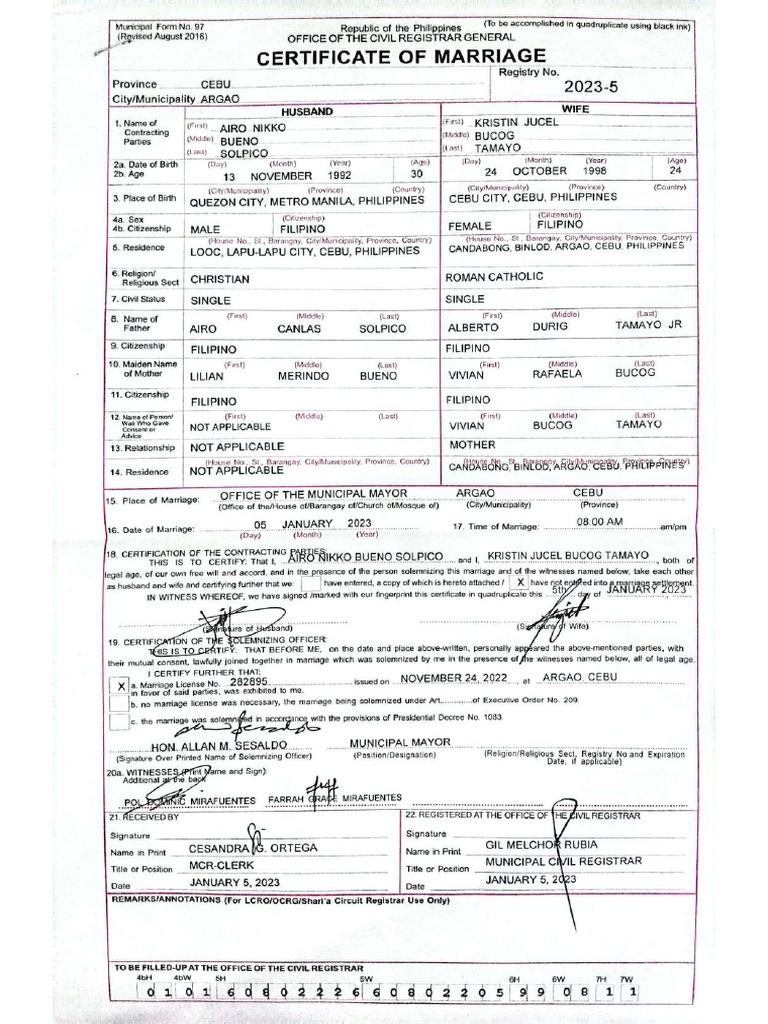 Municipal Form No. 97
(Revised August 2016)
(To be accomplished in quadruplicate using black ink)
Republic of the Philippines
OFFICE OF THE CIVIL REGISTRAR GENERAL
CERTIFICATE OF MARRIAGE
Province CEBU
City/Municipality ARGAO
Registry No.
2023-5
HUSBAND WIFE
1. Name of Contracting Parties (First) AIRO NIKKO (First) KRISTIN JUCEL
(Middle) BUENO (Middle) BUCOG
(Last) SOLPICO (Last) TAMAYO
2a. Date of Birth (Day) (Month) (Year) (Age) (Day) (Month) (Year) (Age)
2b. Age 13 NOVEMBER 1992 30 24 OCTOBER 1998 24
3. Place of Birth (City/Municipality) (Province) (Country) (City/Municipality) (Province) (Country)
QUEZON CITY, METRO MANILA, PHILIPPINES CEBU CITY, CEBU, PHILIPPINES
4a. Sex (Citizenship) (Citizenship)
4b. Citizenship MALE FILIPINO FEMALE FILIPINO
5. Residence (House No., St., Barangay, City/Municipality, Province, Country) (House No., St., Barangay, City/Municipality, Province, Country)
LOOC, LAPU-LAPU CITY, CEBU, PHILIPPINES CANDABONG, BINLOD, ARGAO, CEBU, PHILIPPINES
6. Religion/ Religious Sect CHRISTIAN ROMAN CATHOLIC
7. Civil Status SINGLE SINGLE
8. Name of Father (First) (Middle) (Last) (First) (Middle) (Last)
AIRO CANLAS SOLPICO ALBERTO DURIG TAMAYO JR
9. Citizenship FILIPINO FILIPINO
10. Maiden Name of Mother (First) (Middle) (Last) (First) (Middle) (Last)
LILIAN MERINDO BUENO VIVIAN RAFAELA BUCOG
11. Citizenship FILIPINO FILIPINO
12. Name of Person/ Wali Who Gave Consent or Advice (First) (Middle) (Last) (First) (Middle) (Last)
NOT APPLICABLE VIVIAN BUCOG TAMAYO
13. Relationship NOT APPLICABLE MOTHER
14. Residence (House No., St., Barangay, City/Municipality, Province, Country) (House No., St., Barangay, City/Municipality, Province, Country)
NOT APPLICABLE CANDABONG, BINLOD, ARGAO, CEBU, PHILIPPINES
15. Place of Marriage: OFFICE OF THE MUNICIPAL MAYOR ARGAO CEBU
(Office of the/House of/Barangay of/Church of/Mosque of) (City/Municipality) (Province)
16. Date of Marriage: 05 JANUARY 2023 17. Time of Marriage: 08:00 AM am/pm
(Day) (Month) (Year)
18. CERTIFICATION OF THE CONTRACTING PARTIES:
THIS IS TO CERTIFY: That I, AIRO NIKKO BUENO SOLPICO and I, KRISTIN JUCEL BUCOG TAMAYO, both of
legal age, of our own free will and accord, and in the presence of the person solemnizing this marriage and of the witnesses named below, take each other
as husband and wife and certifying further that we: have entered, a copy of which is hereto attached / X have not entered into a marriage settlement.
IN WITNESS WHEREOF, we have signed /marked with our fingerprint this certificate in quadruplicate this 5th day of JANUARY 2023
(Signature of Husband) (Signature of Wife)
19. CERTIFICATION OF THE SOLEMNIZING OFFICER:
THIS IS TO CERTIFY: THAT BEFORE ME, on the date and place above-written, personally appeared the above-mentioned parties, with
their mutual consent, lawfully joined together in marriage which was solemnized by me in the presence of the witnesses named below, all of legal age.
I CERTIFY FURTHER THAT:
X a. Marriage License No. 282895 issued on NOVEMBER 24, 2022, at ARGAO, CEBU
in favor of said parties, was exhibited to me.
b. no marriage license was necessary, the marriage being solemnized under Art. of Executive Order No. 209.
c. the marriage was solemnized in accordance with the provisions of Presidential Decree No. 1083.
HON. ALLAN M. SESALDO MUNICIPAL MAYOR
(Signature Over Printed Name of Solemnizing Officer) (Position/Designation) (Religion/Religious Sect, Registry No and Expiration Date, if applicable)
20a. WITNESSES (Print Name and Sign):
Additional at the back
POL DOMINIC MIRAFUENTES FARRAH GRACE MIRAFUENTES
21. RECEIVED BY 22. REGISTERED AT THE OFFICE OF THE CIVIL REGISTRAR
Signature Signature
Name in Print CESANDRA G. ORTEGA Name in Print GIL MELCHOR RUBIA
Title or Position MCR-CLERK Title or Position MUNICIPAL CIVIL REGISTRAR
Date JANUARY 5, 2023 Date JANUARY 5, 2023
REMARKS/ANNOTATIONS (For LCRO/OCRG/Shari'a Circuit Registrar Use Only)
TO BE FILLED-UP AT THE OFFICE OF THE CIVIL REGISTRAR
4bH 4bW 5H 5W 6H 6W 7H 7W
0 1 0 1 6 0 8 0 2 2 2 6 6 0 8 0 2 2 0 5 9 9 0 8 1 1